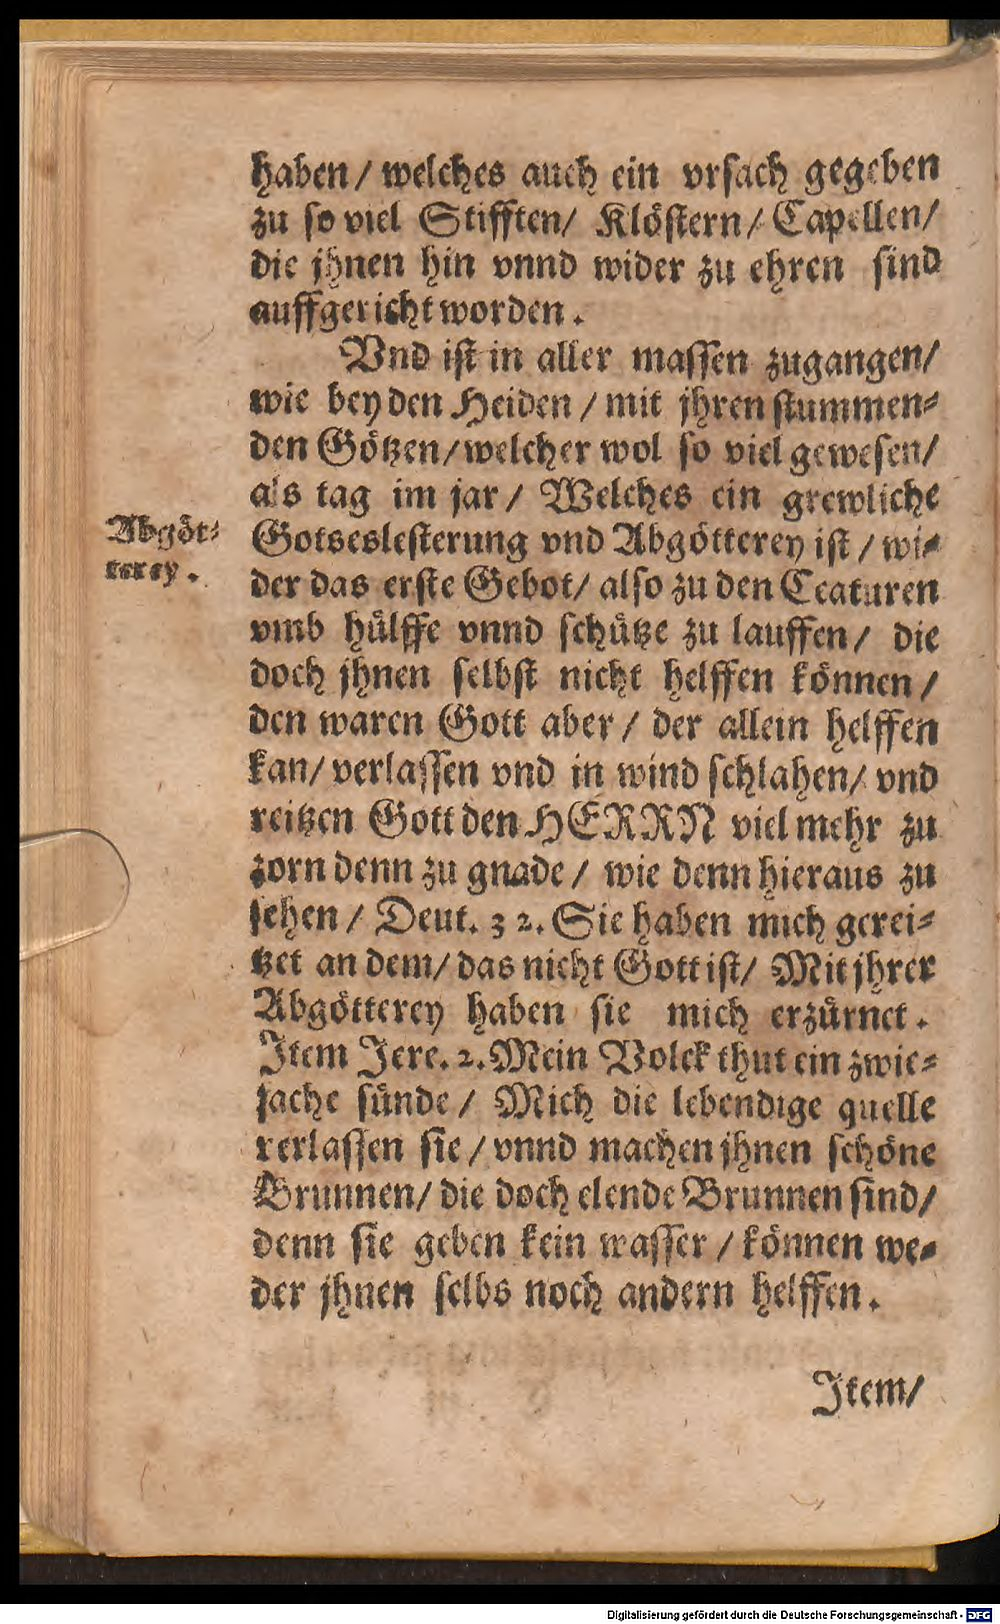 haben / welches auch ein vrsach gegeben
zu so viel Stifften / Klöstern / Capellen /
die jhnen hin vnnd wider zu ehren sind
auffgericht worden.
Vnd ist in aller massen zugangen /
wie bey den Heiden / mit jhren stummen-
den Götzen / welcher wol so viel gewesen /
als tag im jar / Welches ein grewliche
Abgöt-
terey.
Gotseslesterung vnd Abgötterey ist / wi-
der das erste Gebot / also zu den Ceaturen
vmb hülffe vnnd schütze zu lauffen / die
doch jhnen selbst nicht helffen können /
den waren Gott aber / der allein helffen
kan / verlassen vnd in wind schlahen / vnd
reitzen Gott den HERRN viel mehr zu
zorn denn zu gnade / wie denn hieraus zu
sehen / Deut. 32. Sie haben mich gerei-
tzet an dem / das nicht Gott ist / Mit jhrer
Abgötterey haben sie mich erzürnet.
Item Jere. 2. Mein Volck thut ein zwie-
fache sünde / Mich die lebendige quelle
verlassen sie / vnnd machen jhnen schöne
Brunnen / die doch elende Brunnen sind /
denn sie geben kein wasser / können we-
der jhnen selbs noch andern helffen.
Item /
Digitalisierung gefördert durch die Deutsche Forschungsgemeinschaft - DFG